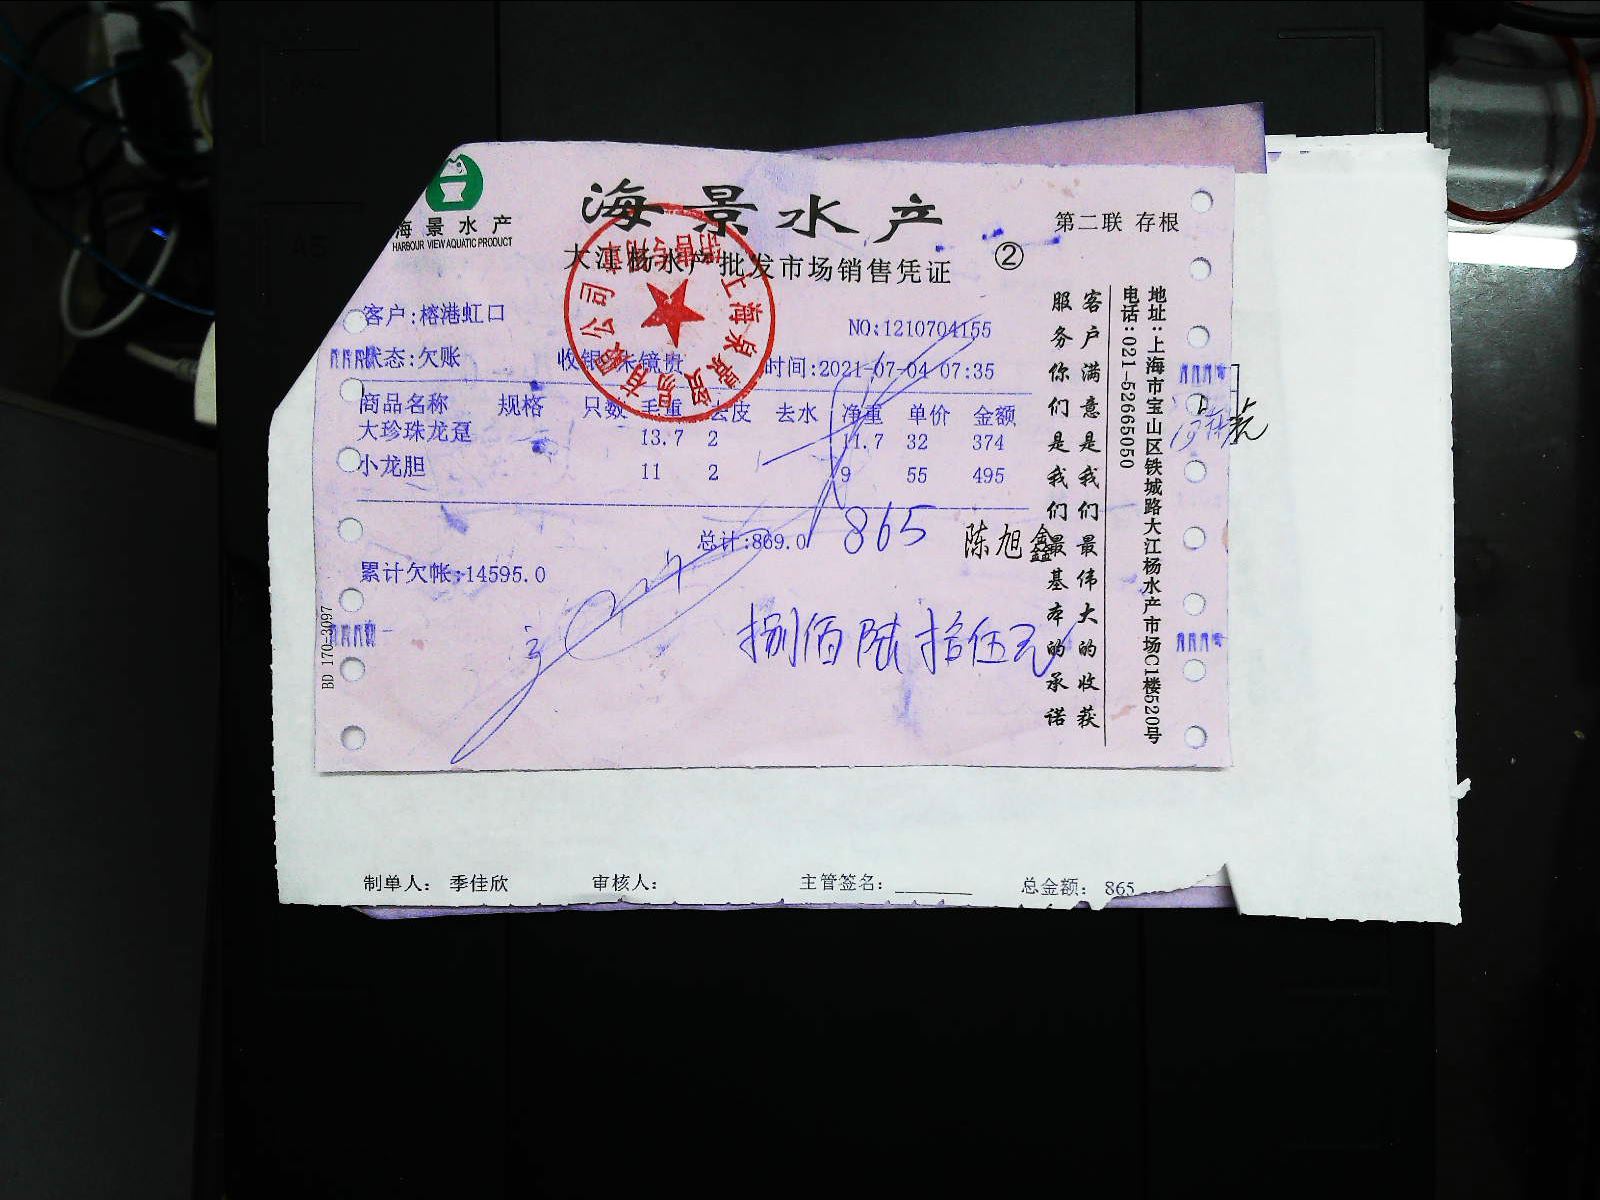 海景水产
HARBOUR VIEW AQUATIC PRODUCT
海景水产
大江杨水产批发市场销售凭证
②
第二联 存根
客户:榕港虹口
NO:1210704155
状态:欠账 收银 朱镜贵 时间:2021-07-04 07:35
商品名称 规格 只数 毛重 去皮 去水 净重 单价 金额
大珍珠龙趸 13.7 2 11.7 32 374
小龙胆 11 2 9 55 495
总计:869.0
865
陈旭鑫
累计欠帐:14595.0
捌佰陆拾伍元
BD 170-3097
客户满意是我们最伟大的收获
服务你们是我们最基本的承诺
地址:上海市宝山区铁城路大江杨水产市场C1楼520号
电话:021-52665050
制单人: 季佳欣 审核人: 主管签名: 总金额: 865